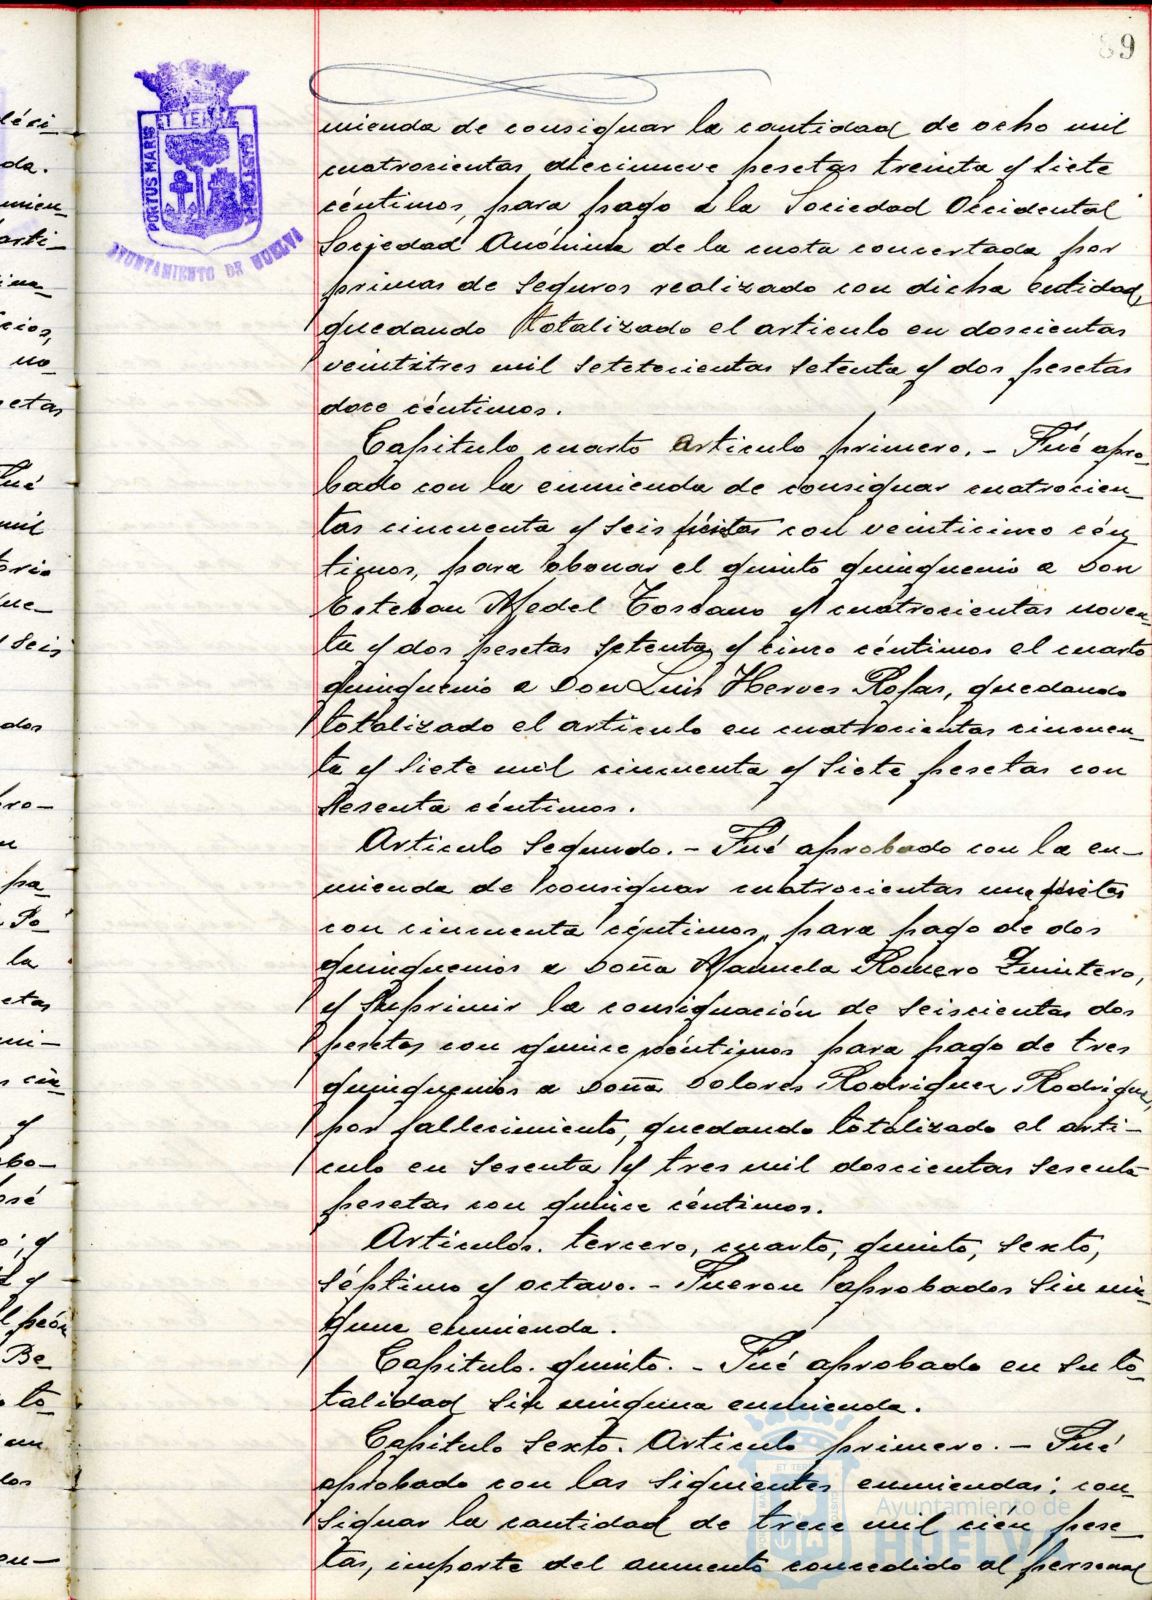 89
PORTUS MARIS ET TERRAE CUSTODIA
AYUNTAMIENTO DE HUELVA
mienda de consignar la cantidad de ocho mil
cuatrocientas diecinueve pesetas treinta y siete
céntimos, para pago a la Sociedad Occidental
Sociedad Anónima de la cuota concertada por
primas de seguros realizado con dicha entidad,
quedando totalizado el articulo en doscientas
veintitres mil setetecientas setenta y dos pesetas
doce céntimos.
Capitulo cuarto articulo primero. - Fué apro-
bado con la enmienda de consignar cuatrocien-
tas cincuenta y seis pesetas con veinticinco cén
timos, para abonar el quinto quinquenio a Don
Esteban Medel Toscano y cuatrocientas noven-
ta y dos pesetas setenta y cinco céntimos el cuarto
quinquenio a Don Luis Herves Rojas, quedando
totalizado el articulo en cuatrocientas cincuen-
ta y siete mil cincuenta y siete pesetas con
sesenta céntimos.
Articulo segundo. - Fué aprobado con la en-
mienda de consignar cuatrocientas una pesetas
con cincuenta céntimos, para pago de dos
quinquenios a Doña Manuela Romero Quintero,
y suprimir la consignación de seiscientas dos
pesetas con quince céntimos para pago de tres
quinquenios a Doña Dolores Rodriguez Rodriguez,
por fallecimiento, quedando totalizado el arti-
culo en sesenta y tres mil doscientas sesenta
pesetas con quince céntimos.
Articulos. tercero, cuarto, quinto, sexto,
séptimo y octavo. - Fueron aprobados sin nin-
guna enmienda.
Capitulo. quinto. - Fué aprobado en su to-
talidad sin ninguna enmienda.
Capitulo sexto. Articulo primero. - Fué
aprobado con las siguientes enmiendas: con-
signar la cantidad de trece mil cien pese-
tas, importe del aumento concedido al personal
Ayuntamiento de
HUELVA